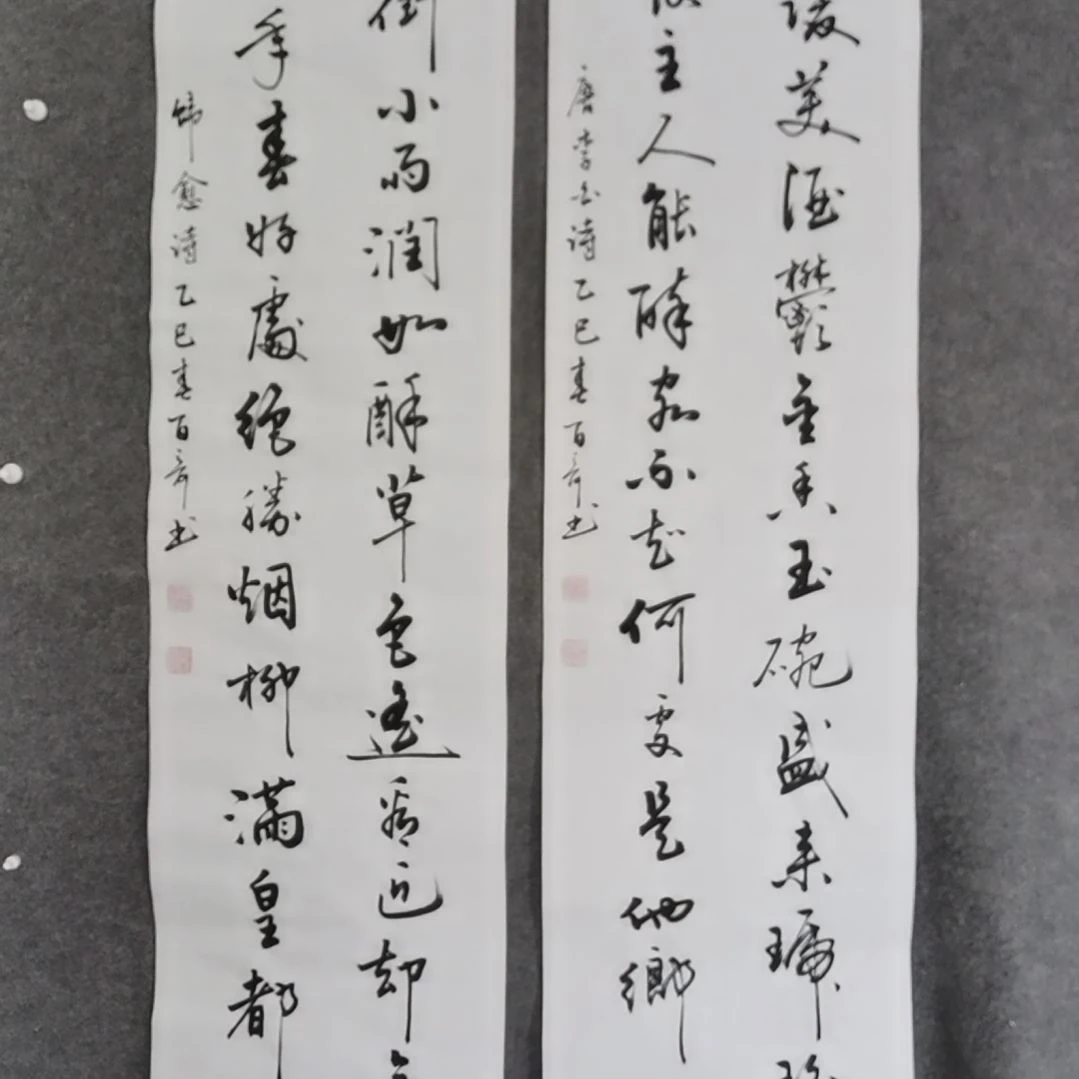 陵美酒鬱金香玉碗盛来琥
主人能醉客不知何處是他鄉
唐李白詩乙巳春百奇书
街小雨潤如酥草色遥看近却
年春好處絕勝烟柳滿皇都
韩愈詩乙巳春百奇书